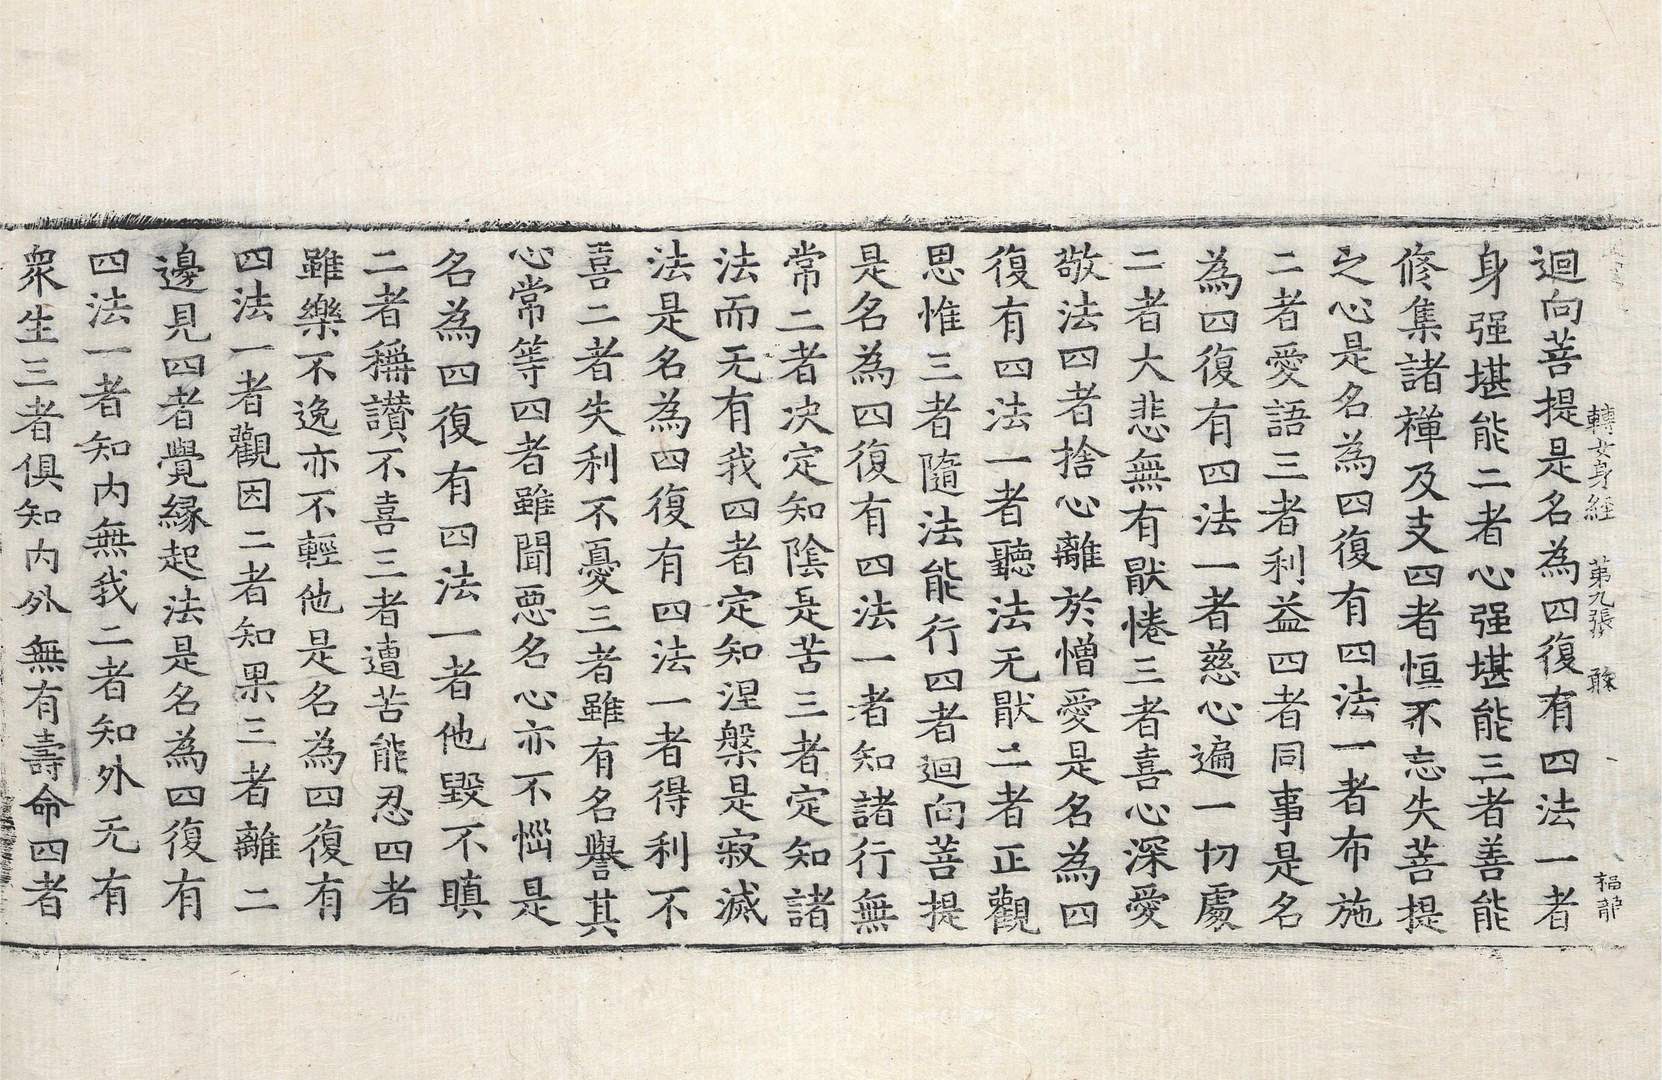 轉女身經 第九張
迴向菩提是名為四復有四法一者
身强堪能二者心强堪能三者善能
修集諸禪及支四者恒不忘失菩提
之心是名為四復有四法一者布施
二者愛語三者利益四者同事是名
為四復有四法一者慈心遍一切處
二者大悲無有猒惓三者喜心深愛
敬法四者捨心離於憎愛是名為四
復有四法一者聽法无猒二者正觀
思惟三者隨法能行四者迴向菩提
是名為四復有四法一者知諸行無
常二者決定知陰是苦三者定知諸
法而无有我四者定知涅槃是寂滅
法是名為四復有四法一者得利不
喜二者失利不憂三者雖有名譽其
心常等四者雖聞惡名心亦不惱是
名為四復有四法一者他毀不瞋
二者稱讃不喜三者遭苦能忍四者
雖樂不逸亦不輕他是名為四復有
四法一者觀因二者知果三者離二
邊見四者覺緣起法是名為四復有
四法一者知內無我二者知外无有
衆生三者俱知內外無有壽命四者